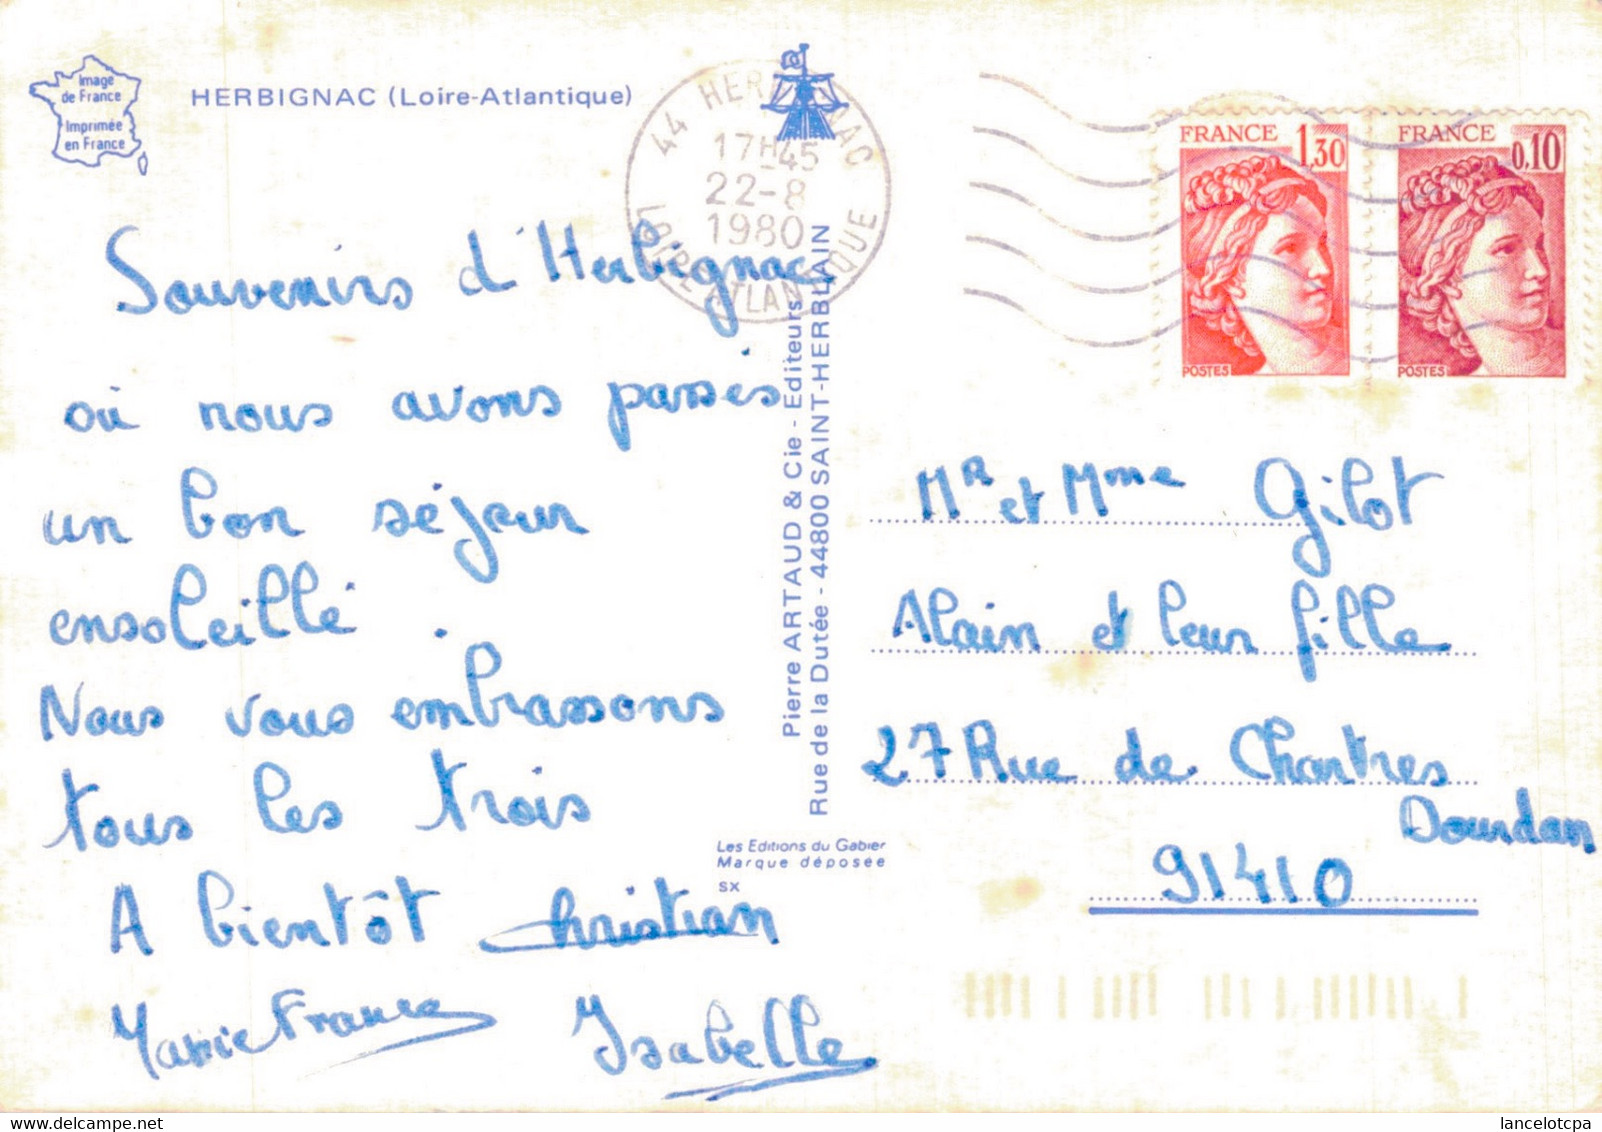 Image
de France
Imprimée
en France
HERBIGNAC (Loire-Atlantique)
44 HERBIGNAC
17H45
22-8
1980
LOIRE ATLANTIQUE
FRANCE 1,30
POSTES
FRANCE 0,10
POSTES
Souvenirs d'Herbignac
où nous avons passés
un bon séjour
ensoleillé.
Nous vous embrassons
tous les trois
A bientôt Christian
Marie France Isabelle
Pierre ARTAUD & Cie - Editeurs
Rue de la Dutée - 44800 SAINT-HERBLAIN
Les Editions du Gabier
Marque déposée
SX
Mr et Mme Gilot
Alain et leur fille
27 Rue de Chartres
Dourdan
91410
lancelotcpa